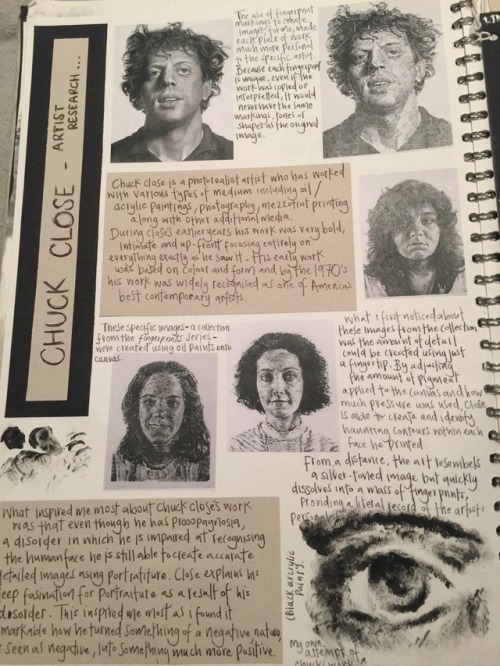 CHUCK CLOSE - ARTIST
RESEARCH ...
The use of fingerprint
markings to create
images forms, made
each piece of work
much more personal
to the specific artist.
Because each fingerprint
is unique, even if the
work was copied or
interpretted, it would
never have the same
markings, tones or
shapes as the original
image.
Chuck Close is a photorealist artist who has worked
with various types of medium including oil/
acrylic paintings, photography, mezzotint printing
along with other additional media.
During close's earlier years his work was very bold,
intimate and up-front focusing entirely on
everything exactly as he saw it. His early work
was based on colour and form and by the 1970's
his work was widely recognised as one of America's
best contemporary artists.
These specific images - a collection
from the fingerprints series -
were created using oil paints onto
canvas.
What I first noticed about
these images from the collection
was the amount of detail
could be created using just
a fingertip. By adjusting
the amount of pigment
applied to the canvas and how
much pressure was used, Close
is able to create and identify
haunting contours within each
face he printed.
From a distance, the art resembels
a silver-toned image but quickly
dissolves into a mass of fingerprints,
providing a literal record of the artist's
What inspired me most about Chuck Close's work
was that even though he has Prosopagnosia,
a disorder in which he is impaired at recognising
the human face he is still able to create accurate
detailed images using portratiture. Close explains his
deep fasination for portraiture as a result of his
disorder. This inspired me most as i found it
markable how he turned something of a negative nature,
seen as negative, into something much more positive.
(Black acrylic
Paint).
My own
attempt of
chuck's work